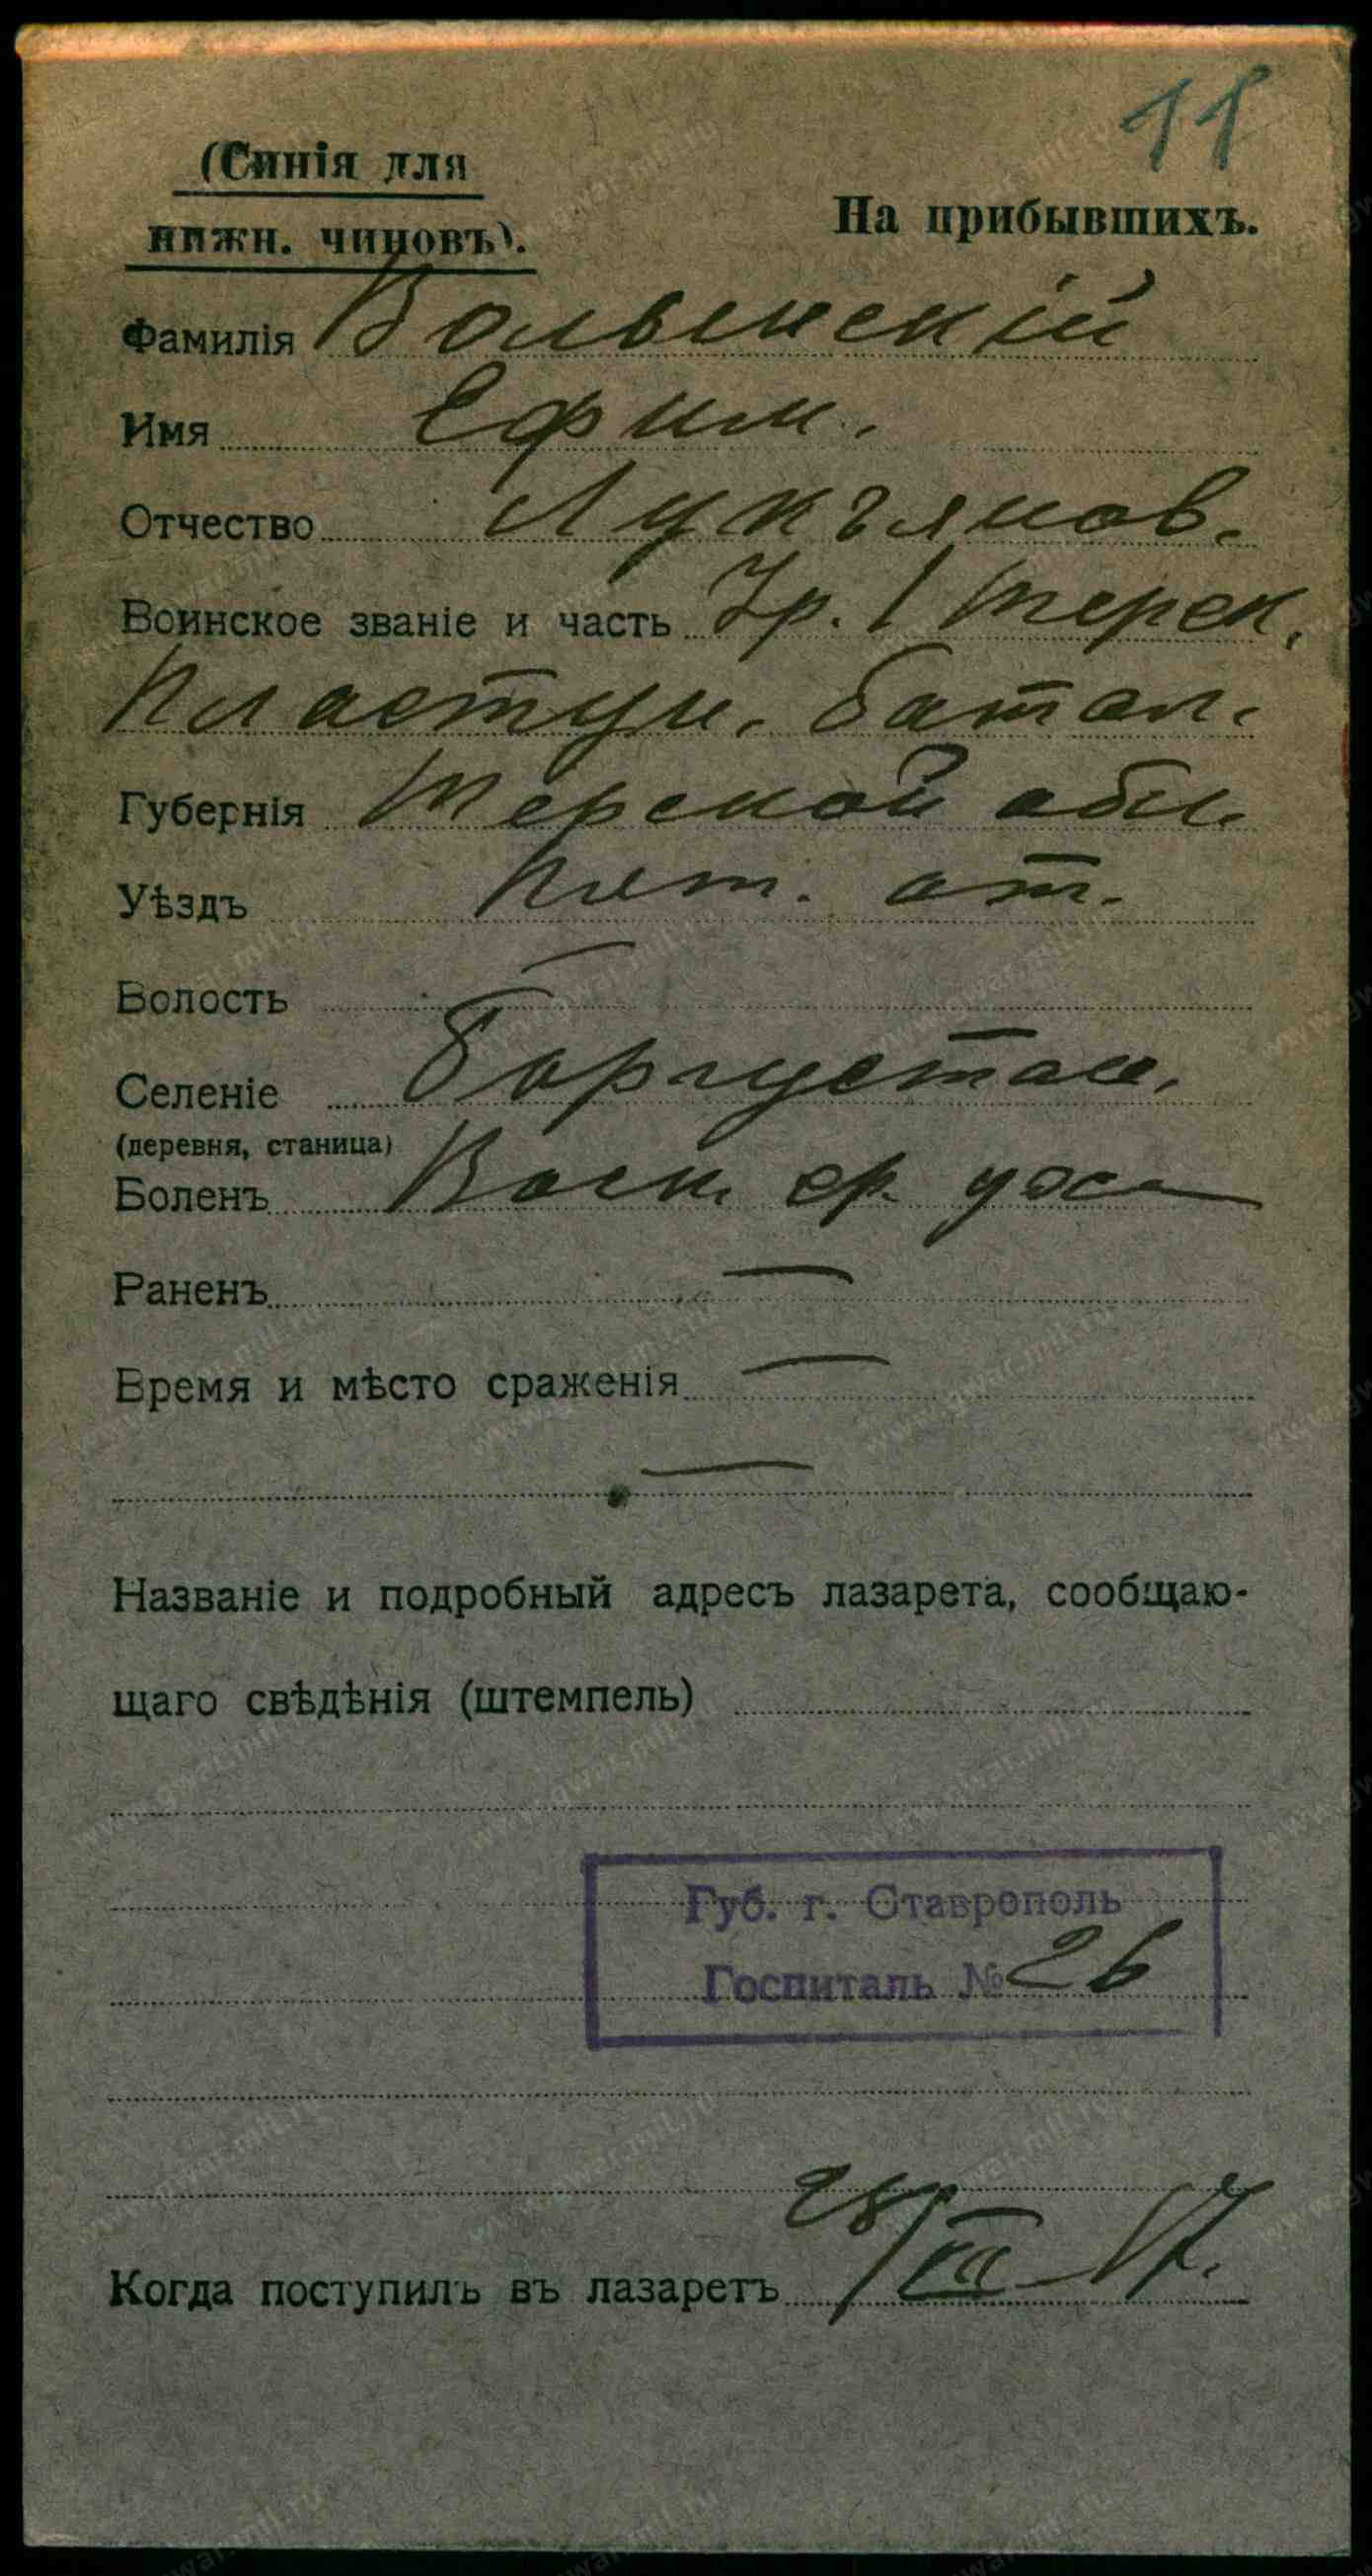 11
(Синія для
нижн. чиновъ).
На прибывшихъ.
Фамилія Волынскій
Имя Ефим.
Отчество Лукъянов.
Воинское званіе и часть Ур. 1 Терск.
Пластун. батал.
Губернія Терской обл.
Уѣздъ Пят. от.
Волость —
Селеніе Боргустан.
(деревня, станица)
Боленъ Восп. ср. уха
Раненъ —
Время и мѣсто сраженія —
—
Названіе и подробный адресъ лазарета, сообщаю-
щаго свѣдѣнія (штемпель)
Губ. г. Ставрополь
Госпиталь № 26
Когда поступилъ въ лазаретъ 28/VII 17.